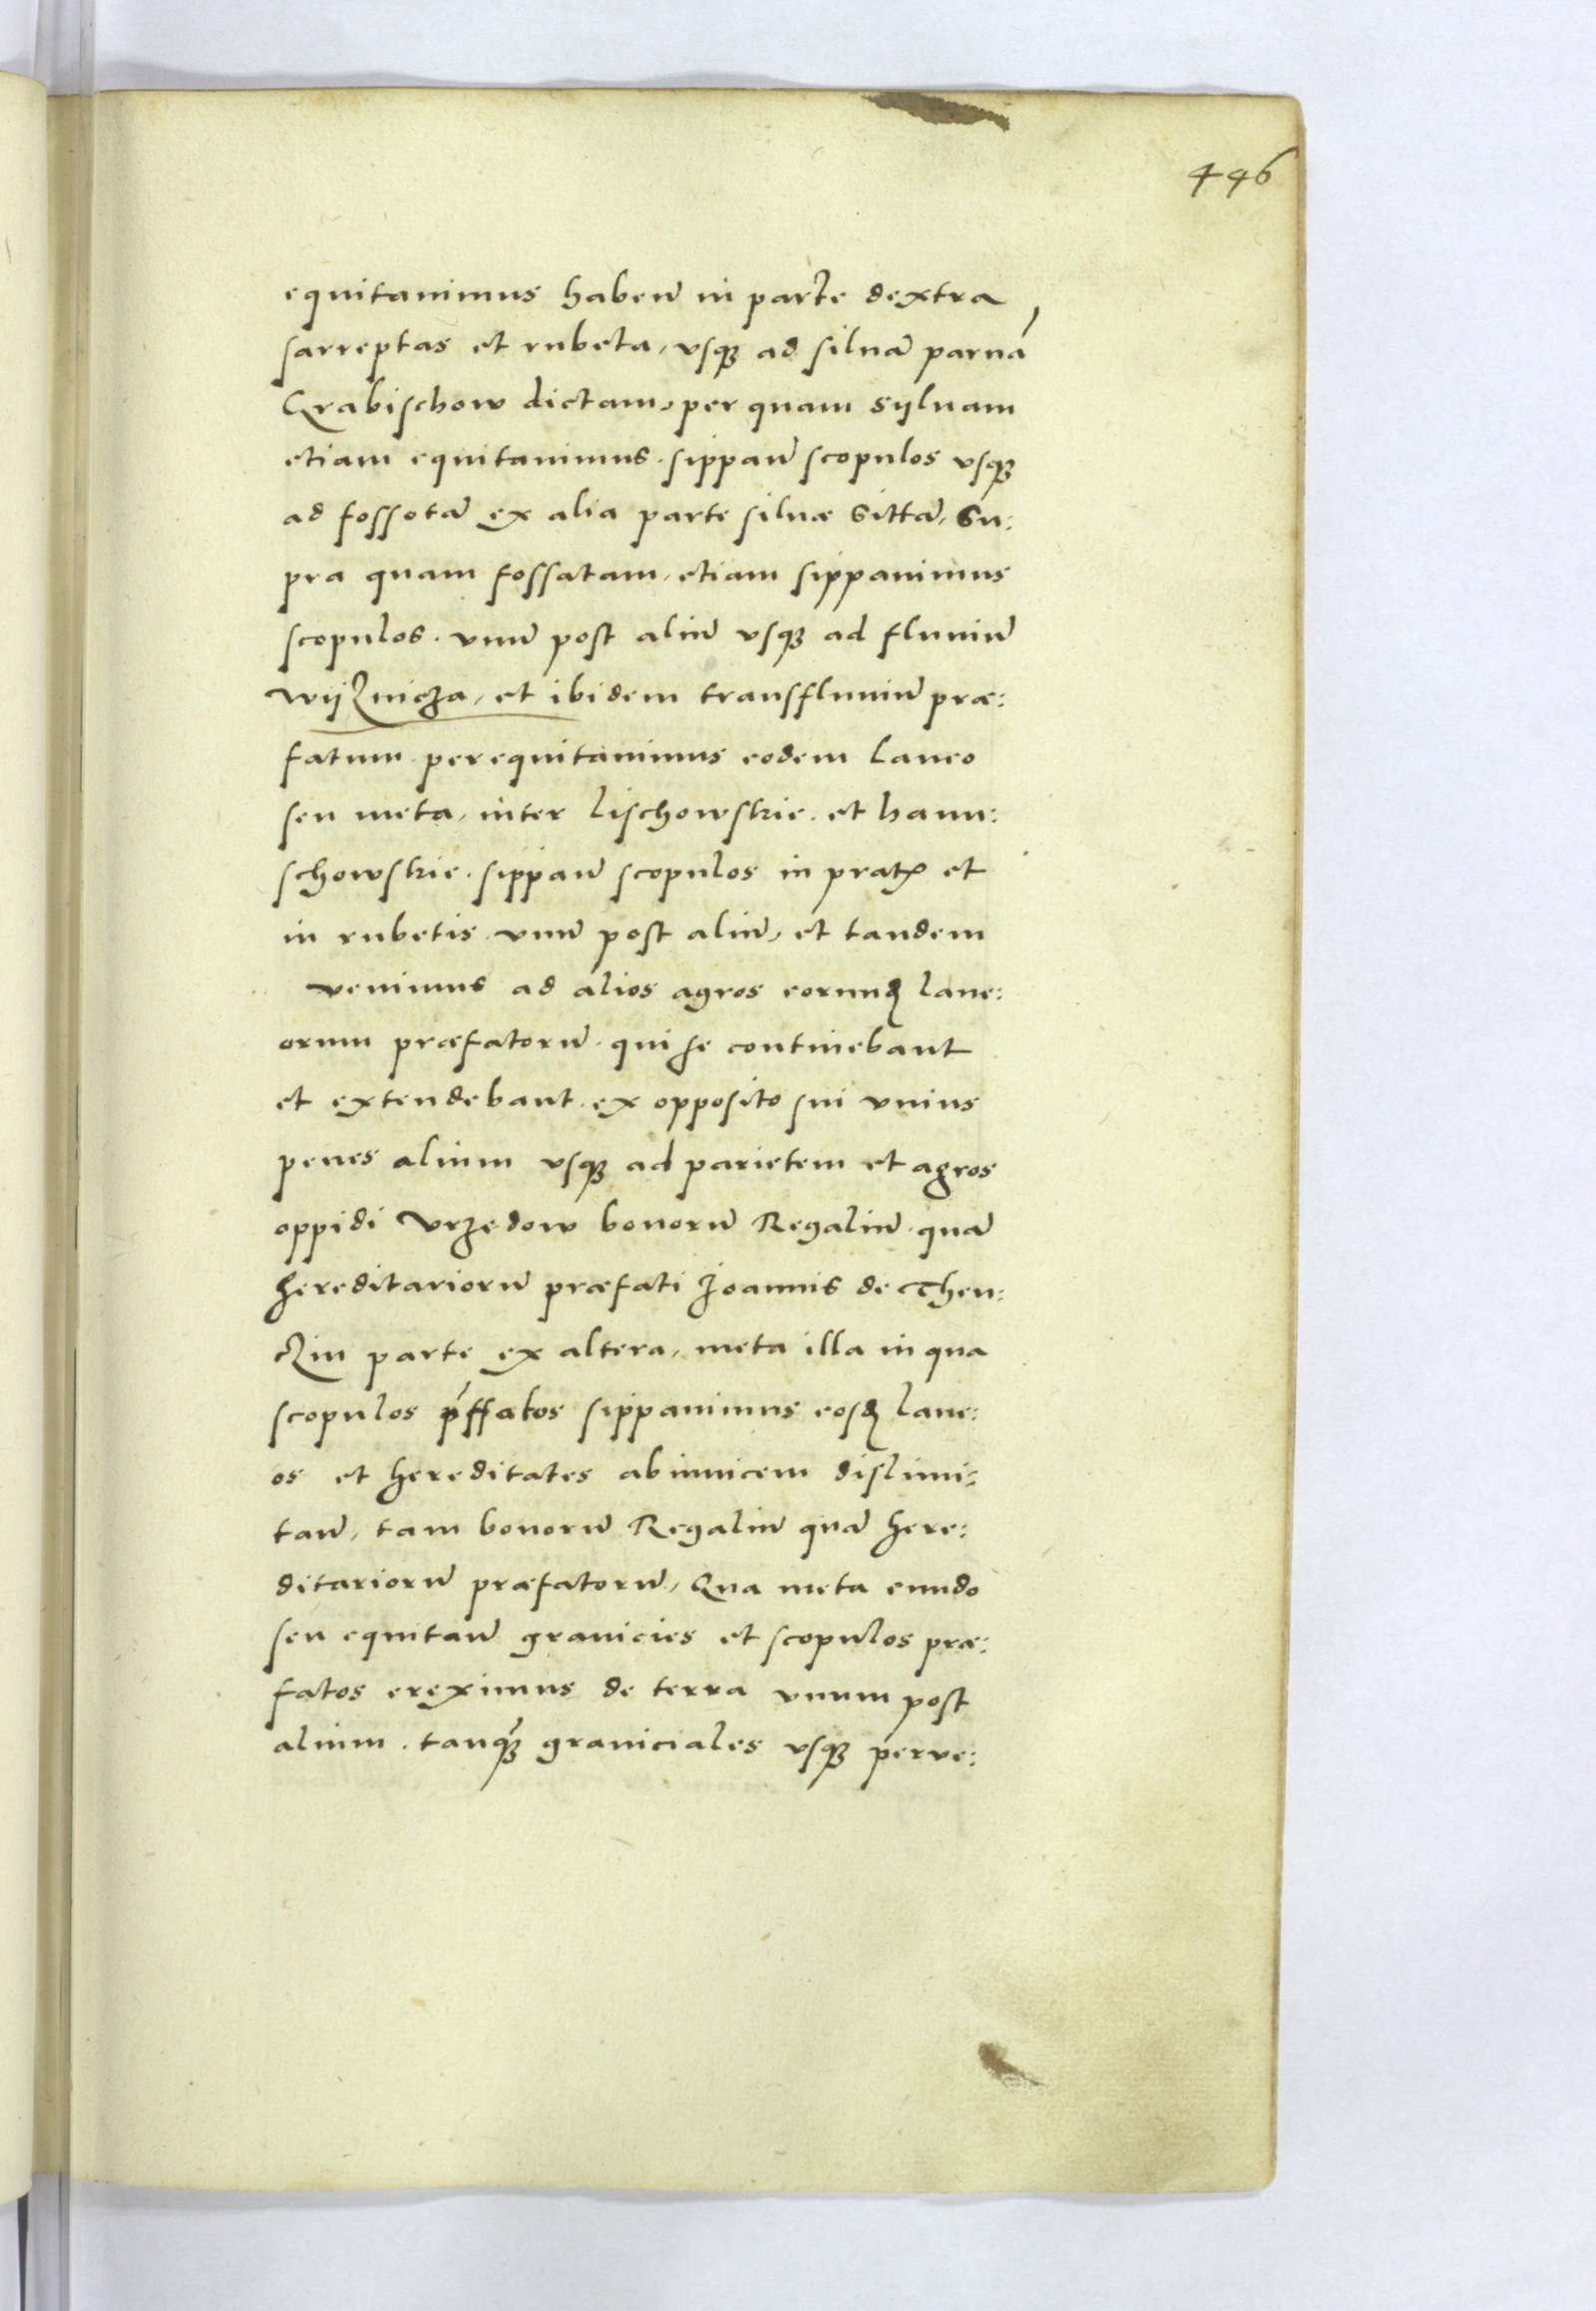 446
equitauimus habeñ in parte dextra
sarreptas et rubeta, vsqꝫ ad siluã paruã
Grabischow dictam, per quam syluam
etiam equitauimus. sippañ scopulos vsqꝫ
ad fossotã ex alia parte siluæ sittã, su:
pra quam fossatam, etiam sippauimus
scopulos. vnũ post aliũ vsqꝫ ad fluuiũ
Wijznicza, et ibidem transfluuiũ præ:
fatum perequitauimus eodem laneo
seu meta, inter lischowskie. et hann:
schowskie. sippañ scopulos in pratꝭ et
in rubetis vnũ post aliũ, et tandem
venimus ad alios agros eorundꝫ lane:
orum præfatorũ. qui se continebant
et extendebant. ex opposito sui vnius
penes alium vsqꝫ ad parietem et agros
oppidi Vrzedow bonorũ Regaliũ. quã
hereditariorũ præfati Joannis de Then:
czin parte ex altera, meta illa in qua
scopulos p̃ffatos sippauimus eosdꝫ lane:
os et hereditates abinuicem dislimi:
tañ, tam bonorũ Regaliũ quã here:
ditariorũ præfatorũ, Qua meta eundo
seu equitañ granicies et scopulos præ:
fatos ereximus de terra vnum post
alium. tanqꝫ̃ graniciales vsqꝫ perve: